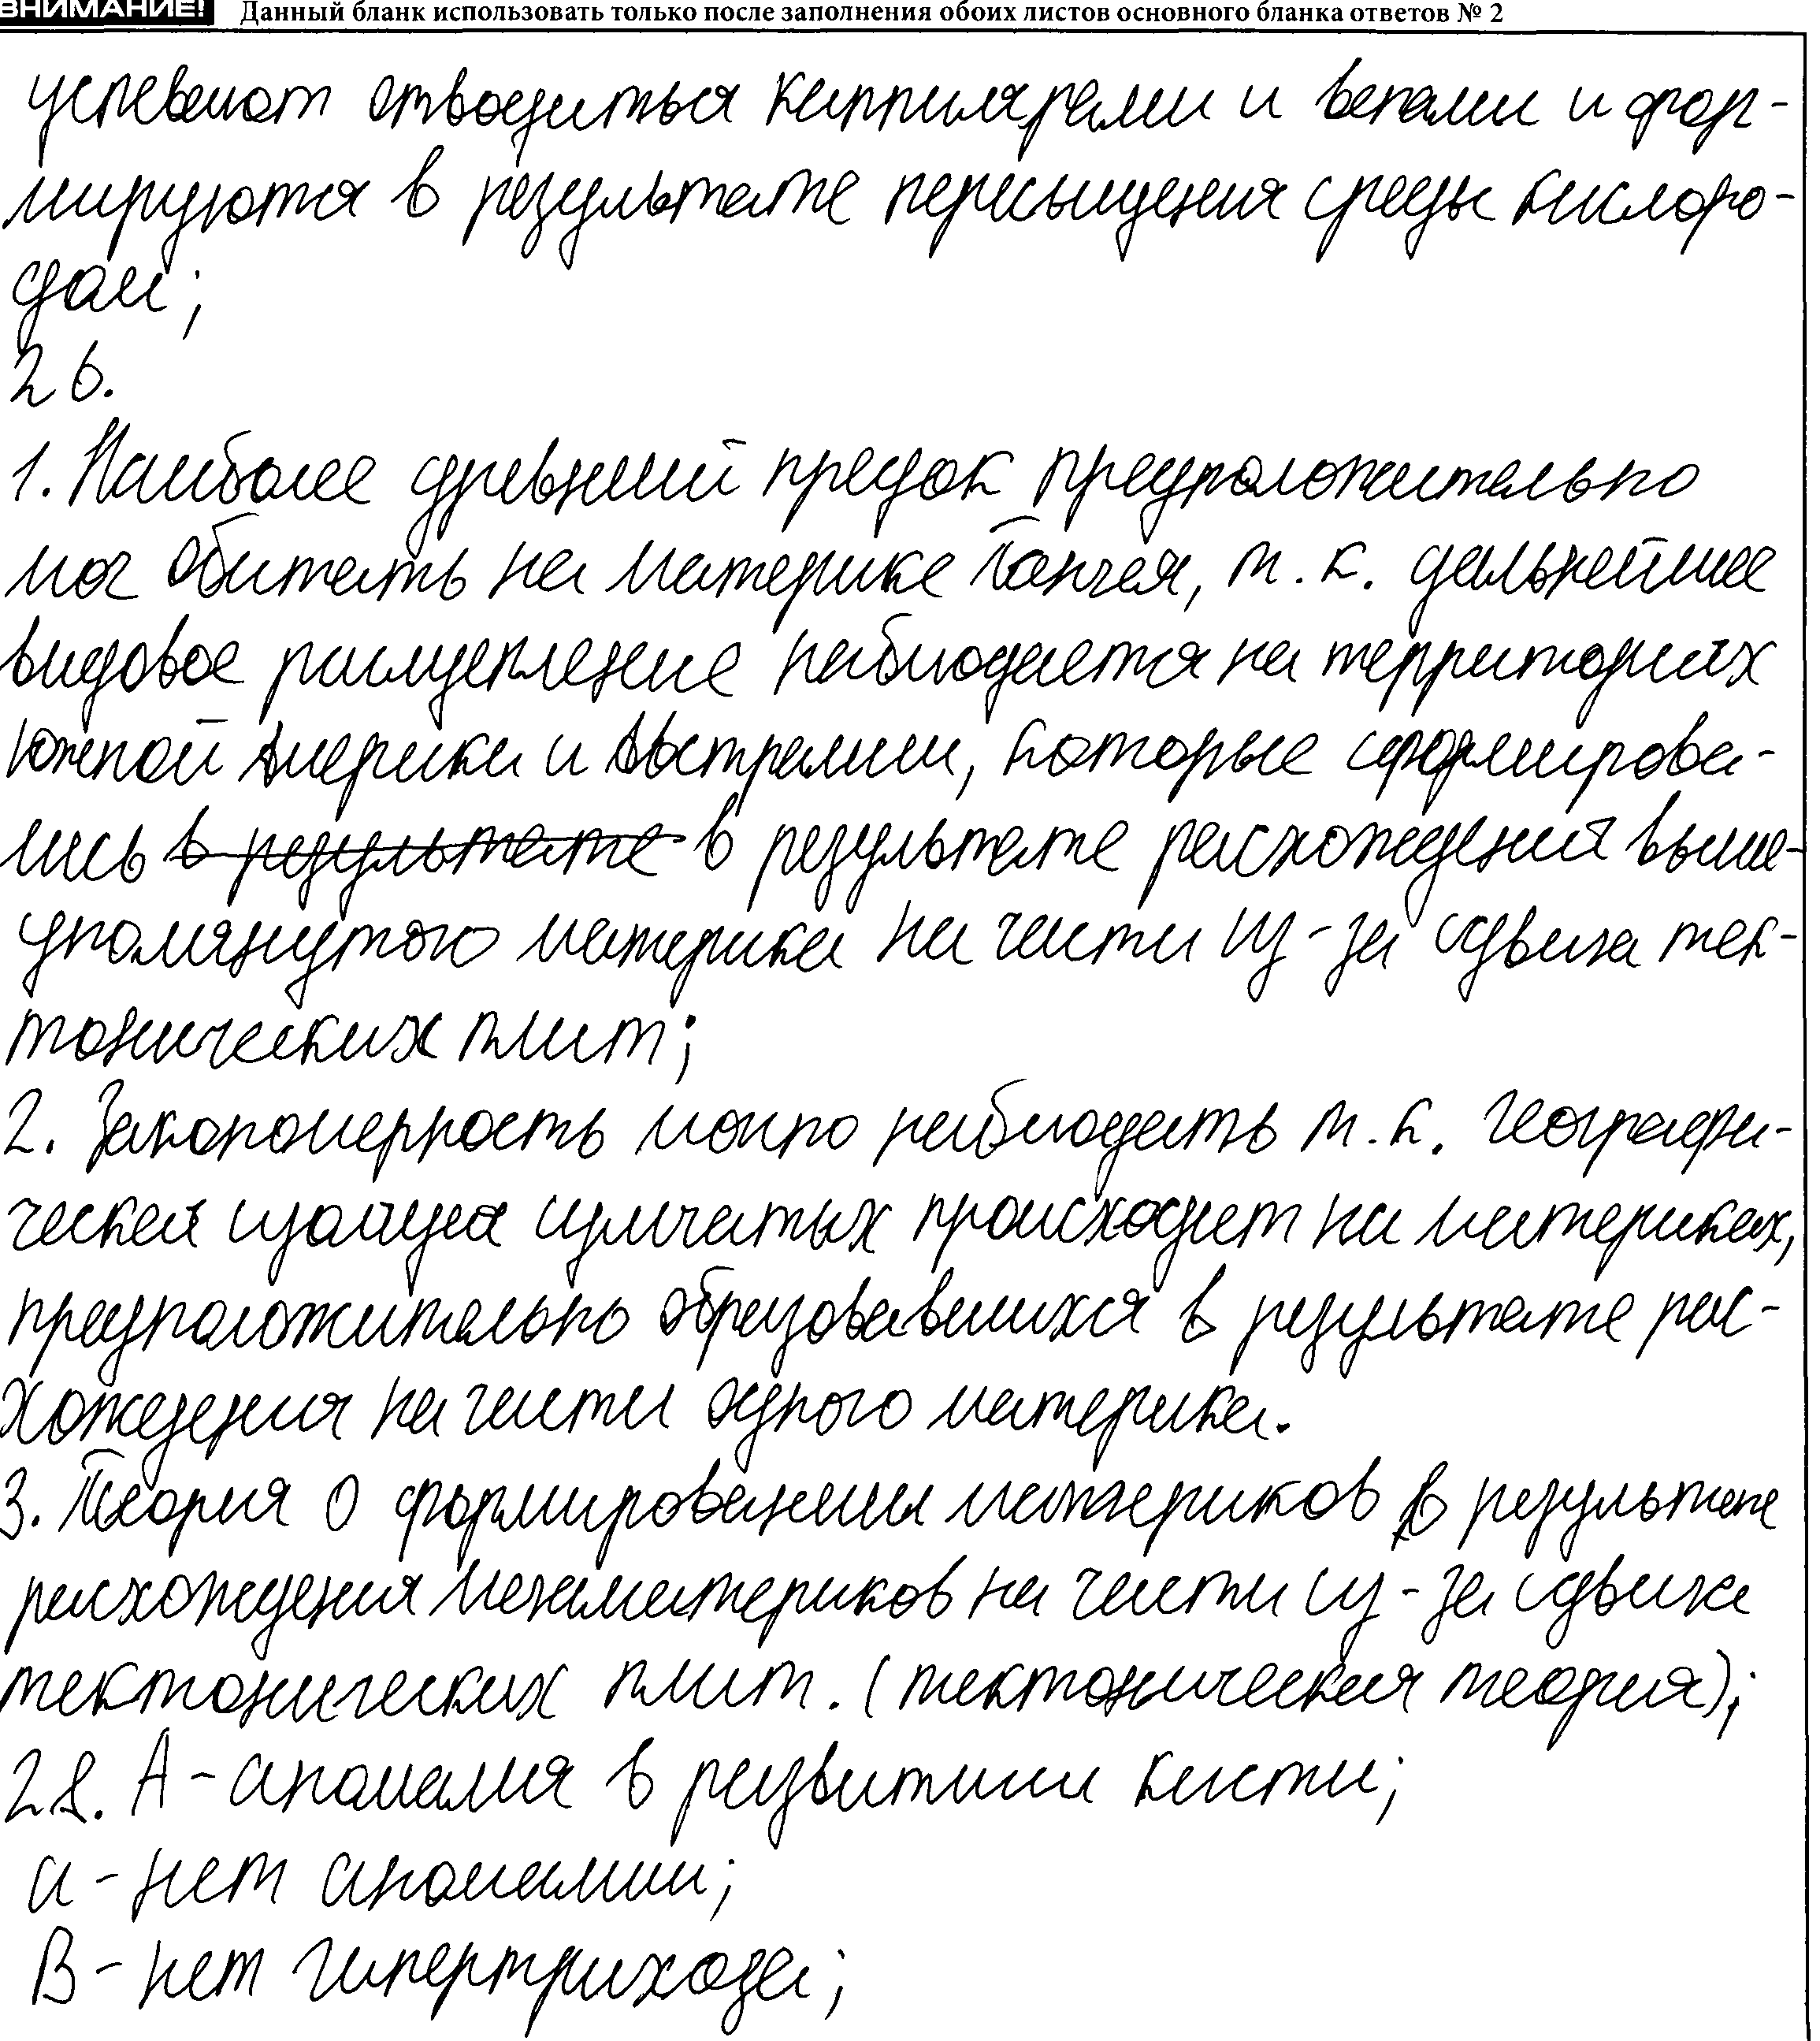 ВНИМАНИЕ! Данный бланк использовать только после заполнения обоих листов основного бланка ответов № 2
успевают отводиться каппилярами и венами и фор-
мируются в результате пересыщения среды кислоро-
дом;
26.
1. Наиболее древний предок предположительно
мог обитать на материке Пангея, т.к. дальнейшее
видовое расщепление наблюдается на территориях
Южной Америки и Австралии, которые сформирова-
лись в результате в результате расхождений выше-
упомянутого материка на части из-за сдвига тек-
тонических плит;
2. Закономерность можно наблюдать т.к. географи-
ческая изоляция сумчатых происходит на материках,
предположительно образовавшихся в результате рас-
хождения на части одного материка.
3. Теория о формировании материков в результате
расхождения мегаматериков на части из-за сдвига
тектонических плит. (тектоническая теория);
28. А - аномалия в развитии кисти;
а - нет аномалии;
В - нет гипертрихоза;